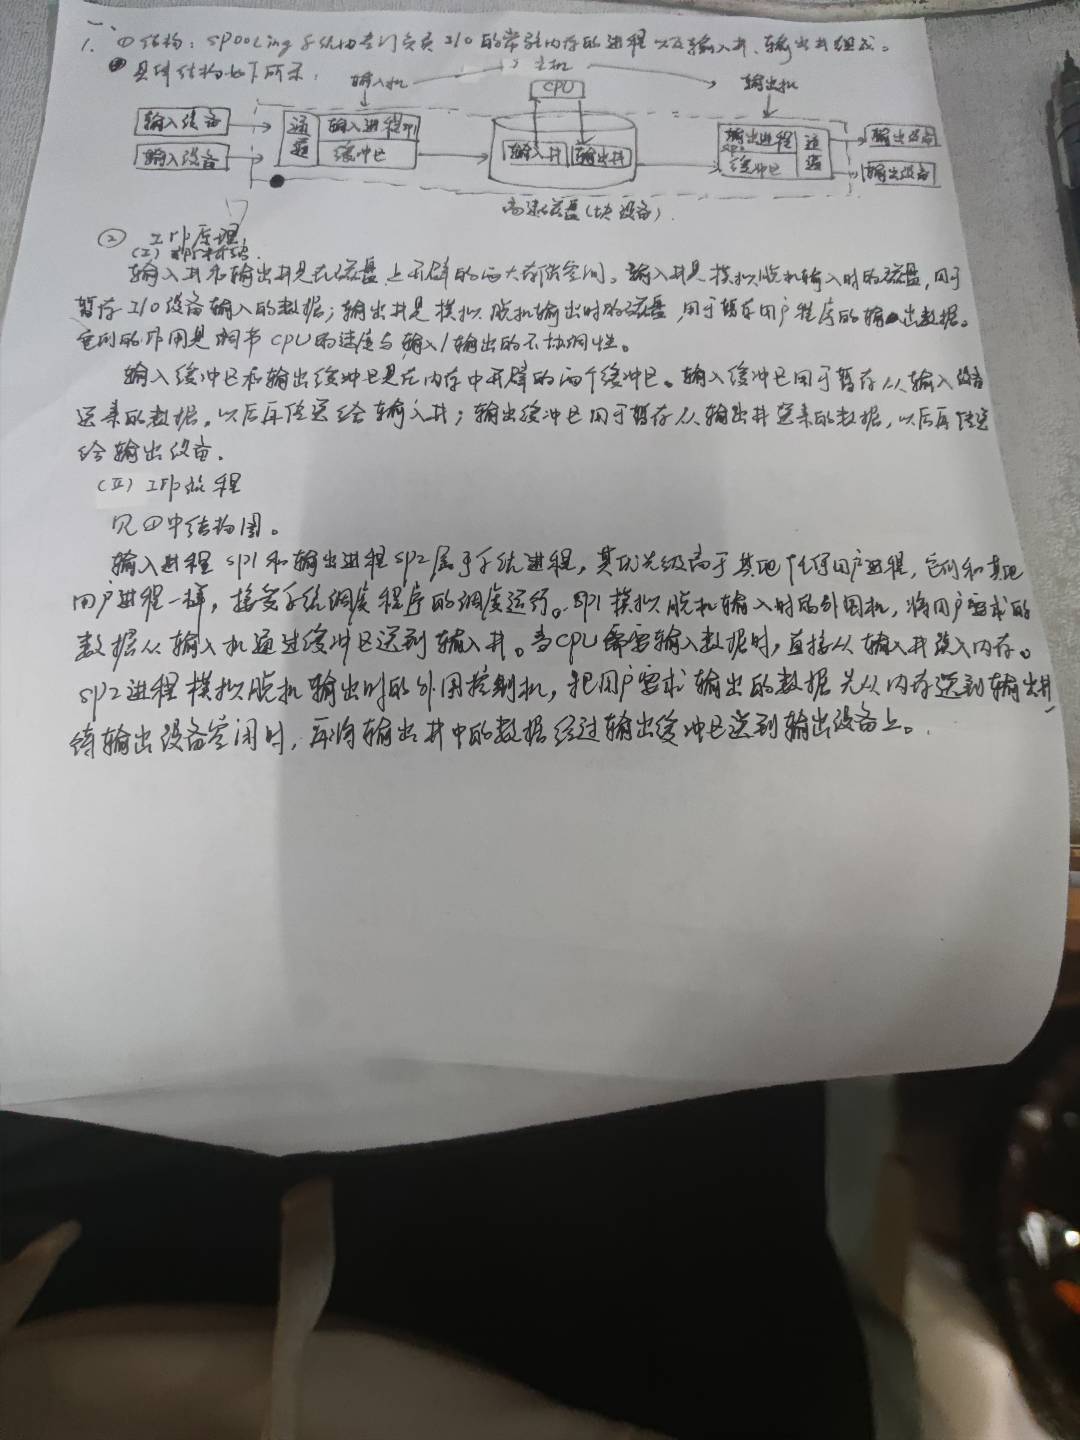 一、
1. ①结构：SPOOLing系统由专门负责I/O的常驻内存的进程以及输入井、输出井组成。
具体结构如下所示：
输入机 主机 输出机
CPU
输入设备 通道 输入进程SP1 输入井 输出井 输出进程 通道 输出设备
输入设备 缓冲区 缓冲区 输出设备
高速磁盘(块设备).
② 工作原理
(I)
输入井和输出井是在磁盘上开辟的两大存储空间。输入井是模拟脱机输入时的磁盘,用于
暂存I/O设备输入的数据；输出井是模拟脱机输出时的磁盘,用于暂存用户程序的输出数据。
它们的作用是调节CPU的速度与输入/输出的不协调性。
输入缓冲区和输出缓冲区是在内存中开辟的两个缓冲区。输入缓冲区用于暂存从输入设备
送来的数据，以后再传送给输入井；输出缓冲区用于暂存从输出井送来的数据，以后再传送
给输出设备.
(II) 工作流程
见①中结构图。
输入进程SP1和输出进程SP2属于系统进程，其优先级高于其他任何用户进程，它们和其他
用户进程一样，接受系统调度程序的调度运行。SP1模拟脱机输入时的外围机，将用户要求的
数据从输入机通过缓冲区送到输入井。当CPU需要输入数据时，直接从输入井读入内存。
SP2进程模拟脱机输出时的外围控制机，把用户要求输出的数据先从内存送到输出井，
待输出设备空闲时，再将输出井中的数据经过输出缓冲区送到输出设备上。